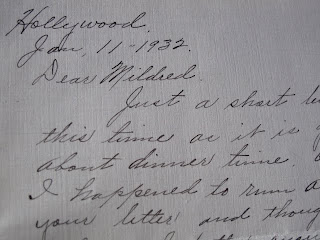 Hollywood.
Jan, 11-1932.
Dear Mildred.
Just a short
this time as it is
about dinner time.
I happened to run
your letter and thoug